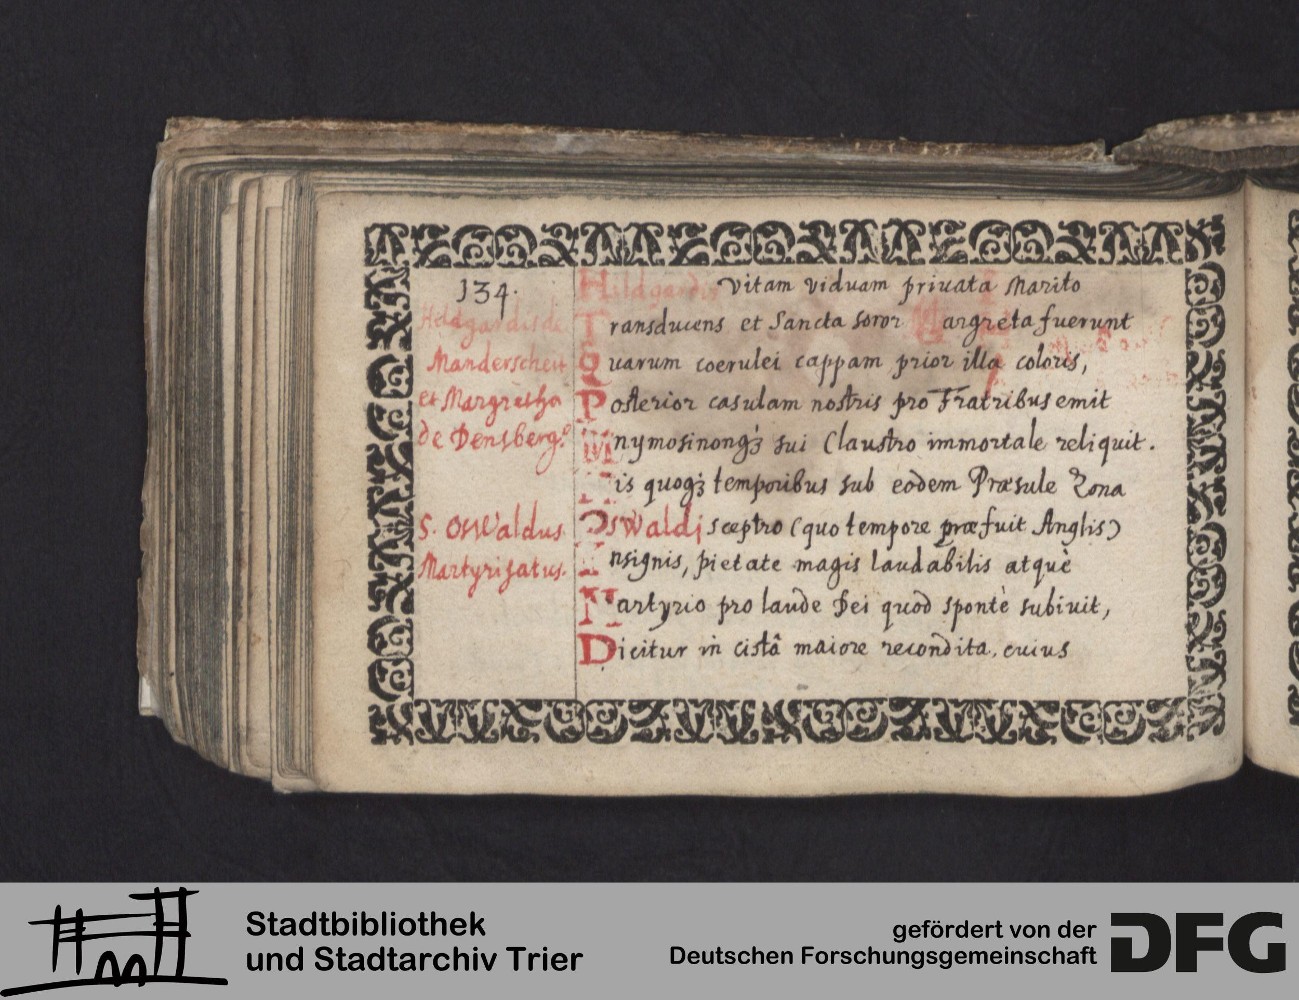 134.
Hildgardis de
Manderscheit
et Margretha
de Densberg.
S. OsWaldus
Martyrisatus.
Hildgardis Vitam viduam priuata Marito
Transducens et Sancta soror Margreta fuerunt
Quarum coerulei cappam prior illa coloris,
Posterior casulam nostris pro Fratribus emit
Mnymosinonqꝫ sui Claustro immortale reliquit.
His quoqꝫ temporibus sub eodem Præsule Zona
OsWaldi sceptro (quo tempore præfuit Anglis)
Insignis, pietate magis laudabilis atquè
Martyrio pro laude Dei quod spontè subiuit,
Dicitur in cistâ maiore recondita, cuius
Stadtbibliothek
und Stadtarchiv Trier
gefördert von der
Deutschen Forschungsgemeinschaft
DFG